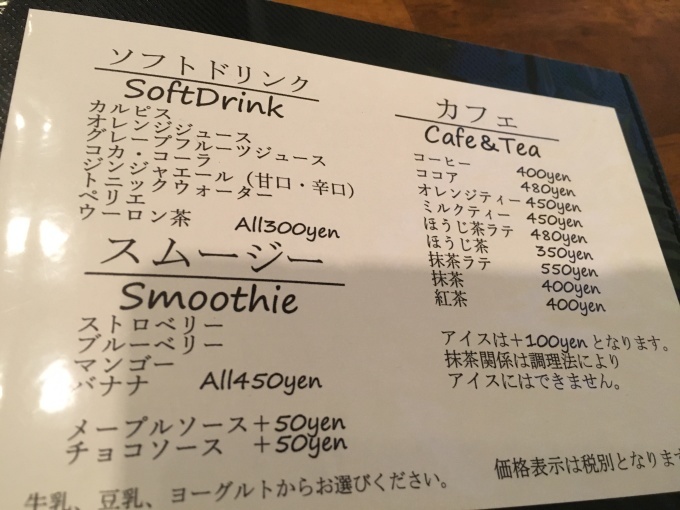 ソフトドリンク
SoftDrink
カルピス
オレンジジュース
グレープフルーツジュース
コカ・コーラ
ジンジャエール（甘口・辛口）
トニックウォーター
ペリエ
ウーロン茶
All300yen
スムージー
Smoothie
ストロベリー
ブルーベリー
マンゴー
バナナ All450yen
メープルソース＋50yen
チョコソース ＋50yen
牛乳、豆乳、ヨーグルトからお選びください。
カフェ
Cafe&Tea
コーヒー 400yen
ココア 480yen
オレンジティー 450yen
ミルクティー 450yen
ほうじ茶ラテ 480yen
ほうじ茶 350yen
抹茶ラテ 550yen
抹茶 400yen
紅茶 400yen
アイスは＋100yenとなります。
抹茶関係は調理法により
アイスにはできません。
価格表示は税別となります